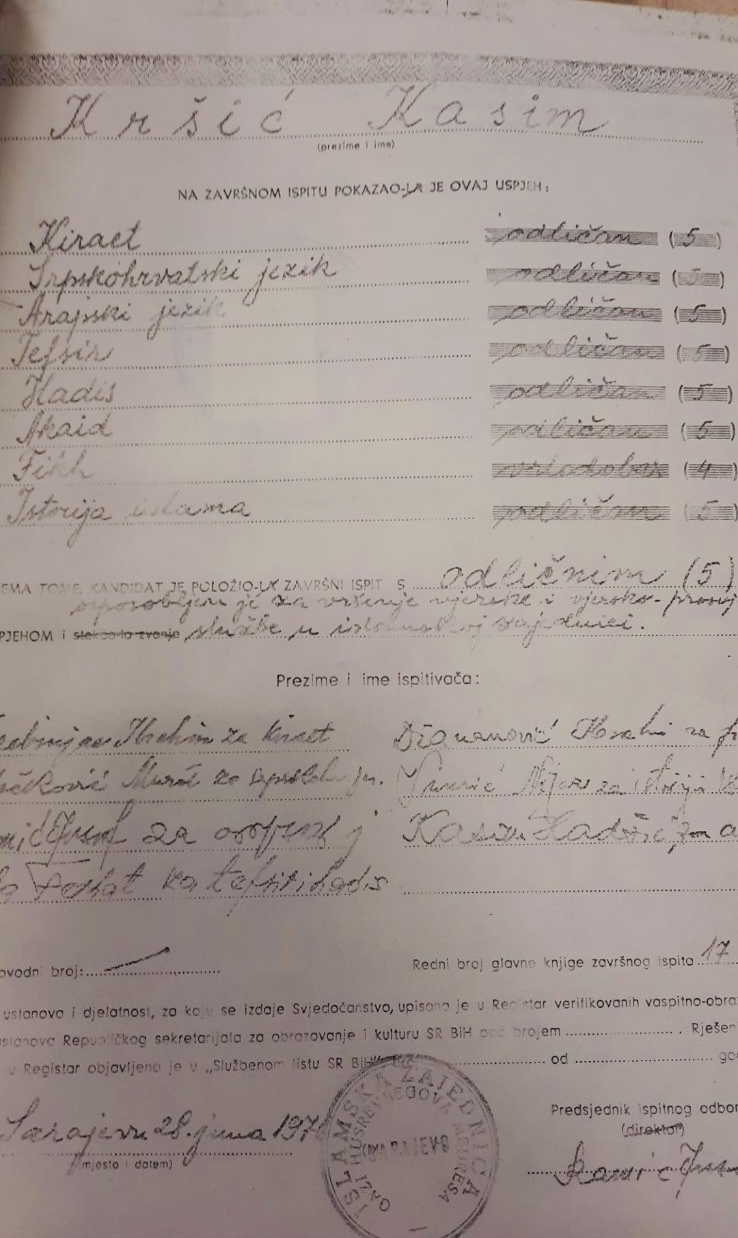 Kršić Kasim
(prezime i ime)
NA ZAVRŠNOM ISPITU POKAZAO-LA JE OVAJ USPJEH:
Kiraet odličan (5)
Srpskohrvatski jezik odličan (5)
Arapski jezik odličan (5)
Tefsir odličan (5)
Hadis odličan (5)
Akaid odličan (5)
Fikh vrlodobar (4)
Istorija islama odličan (5)
EMA TOME, KANDIDAT JE POLOŽIO-LA ZAVRŠNI ISPIT S odličnim (5)
osposobljen je za vršenje vjerske i vjersko-prosvj
PJEHOM i stekao-la zvanje službe u islamskoj zajednici.
Prezime i ime ispitivača:
Ibrahim za kiraet
Murat za
za
za tefsir i hadis
za istoriju
Kasim Hadžić, za a
ovodni broj:
Redni broj glavne knjige završnog ispita 17
ustanova i djelatnost, za koju se izdaje Svjedočanstvo, upisano je u Registar verifikovanih vaspitno-obra
stanova Republičkog sekretarijata za obrazovanje i kulturu SR BiH pod brojem . Rješen
u Registar objavljeno je u „Službenom listu SR BiH" od go
Sarajevu 28. juna 197
(mjesto i datum)
ISLAMSKA ZAJEDNICA
GAZI HUSREVBEGOVA MEDRESA
SARAJEVO
Predsjednik ispitnog odbor
(direktor)